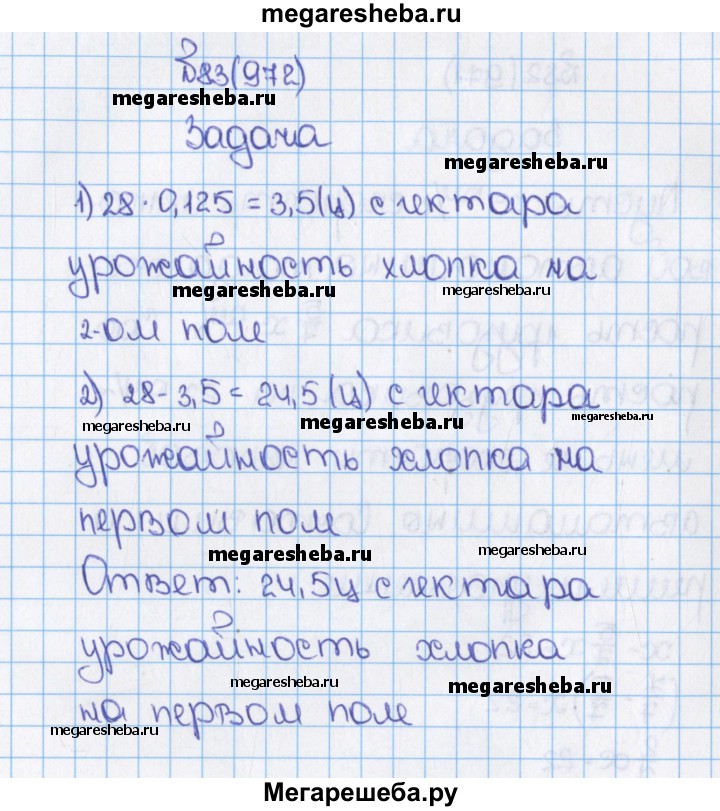 megaresheba.ru
№83(972)
megaresheba.ru
Задача
megaresheba.ru
1) 28 · 0,125 = 3,5(ц) с гектара
урожайность хлопка на
megaresheba.ru megaresheba.ru
2-ом поле
2) 28 - 3,5 = 24,5(ц) с гектара
megaresheba.ru megaresheba.ru megaresheba.ru
урожайность хлопка на
первом поле
megaresheba.ru megaresheba.ru
Ответ: 24,5ц с гектара
урожайность хлопка
megaresheba.ru megaresheba.ru
на первом поле
megaresheba.ru
Мегарешеба.ру